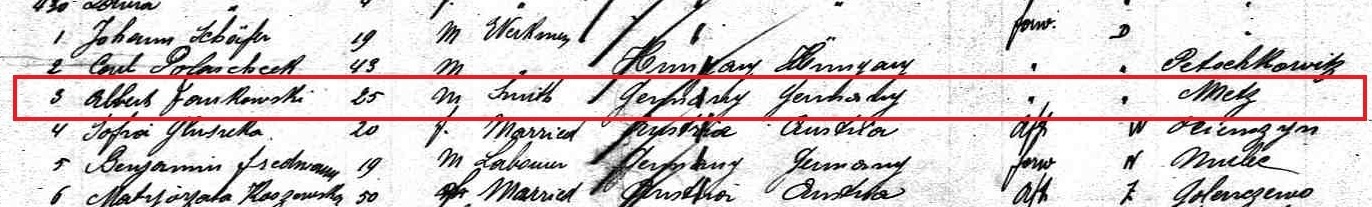 430
1 Johann Schäfer 19 M Werkman forw. D
2 Carl Polascheck 43 M " Hungary Hungary " " Petschkowitz
3 Albert Jankowski 25 M Smith Germany Germany " " Metz
4 Sofia Gluszka 20 f. Married Austria Austria Aft W
5 Benjamin Fredmann 19 M Labourer Germany Germany forw N
6 Malgorzata Koszewska 50 f Married Austria Austria Aft Z Golenczewo